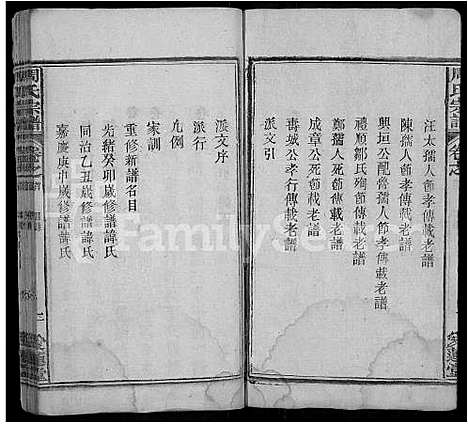 周氏宗譜
汪太孺人節孝傳載老譜
陳孺人節孝傳載老譜
興垣公配魯孺人節孝傳載老譜
禮順鄒氏殉節傳載老譜
鄭孺人死節傳載老譜
成章公死節傳載老譜
壽城公孝行傳載老譜
派文引
派文序
派行
凡例
家訓
重修新譜名目
光緒癸卯歲修譜諱氏
同治乙丑歲修譜諱氏
嘉慶庚申歲修譜諱氏
周氏宗譜
FamilySearch